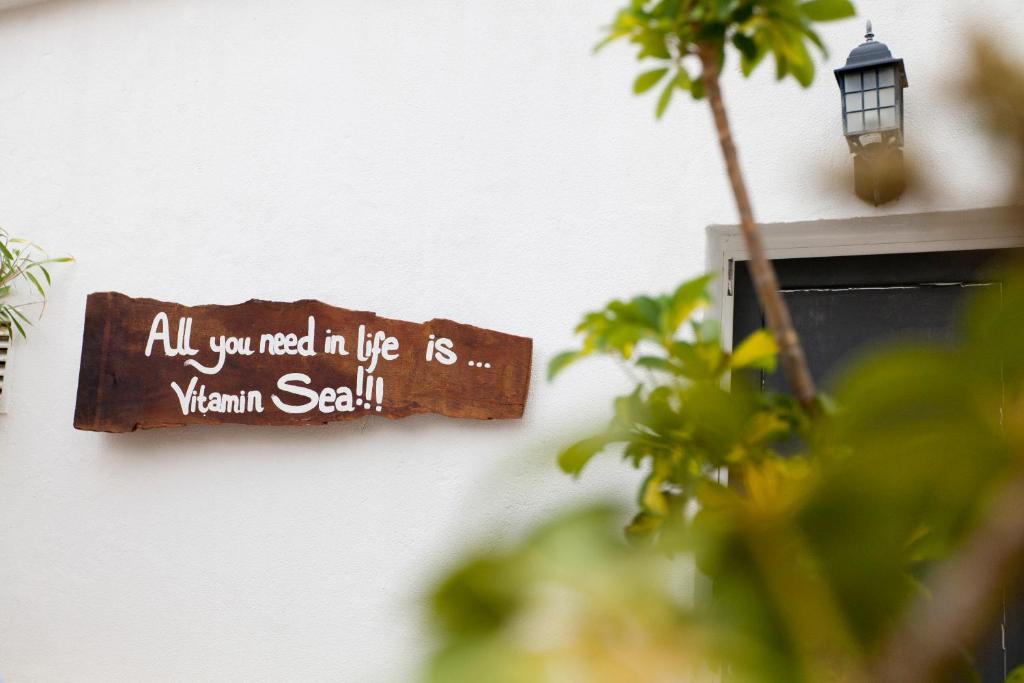 All you need in life is ...
Vitamin Sea!!!